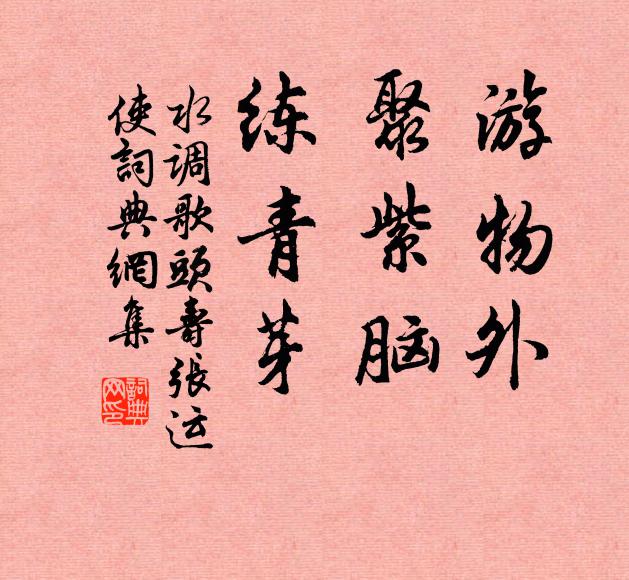 游物外
聚紫脑
练青芽
水调歌头寿张运
使詞典網集
詞典
网印